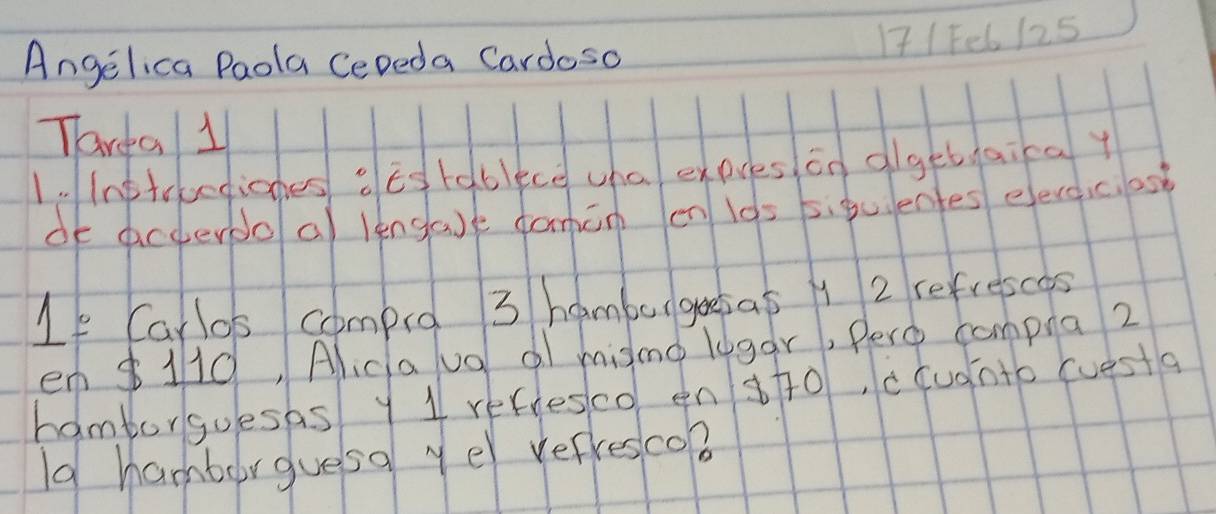 Angélica Paola Cepeda Cardoso
17/Feb/25
Tarea 1
1.- Instrucciones: Establece una expresión algebraica y
de acuerdo al lengaje común en los siguientes ejercicios:
1: Carlos compra 3 hamburguesas y 2 refrescos
en $110, Alicia va al mismo lugar, pero compra 2
hamburguesas y 1 refresco en $70, ¿cuánto cuesta
la hamburguesa y el refresco?